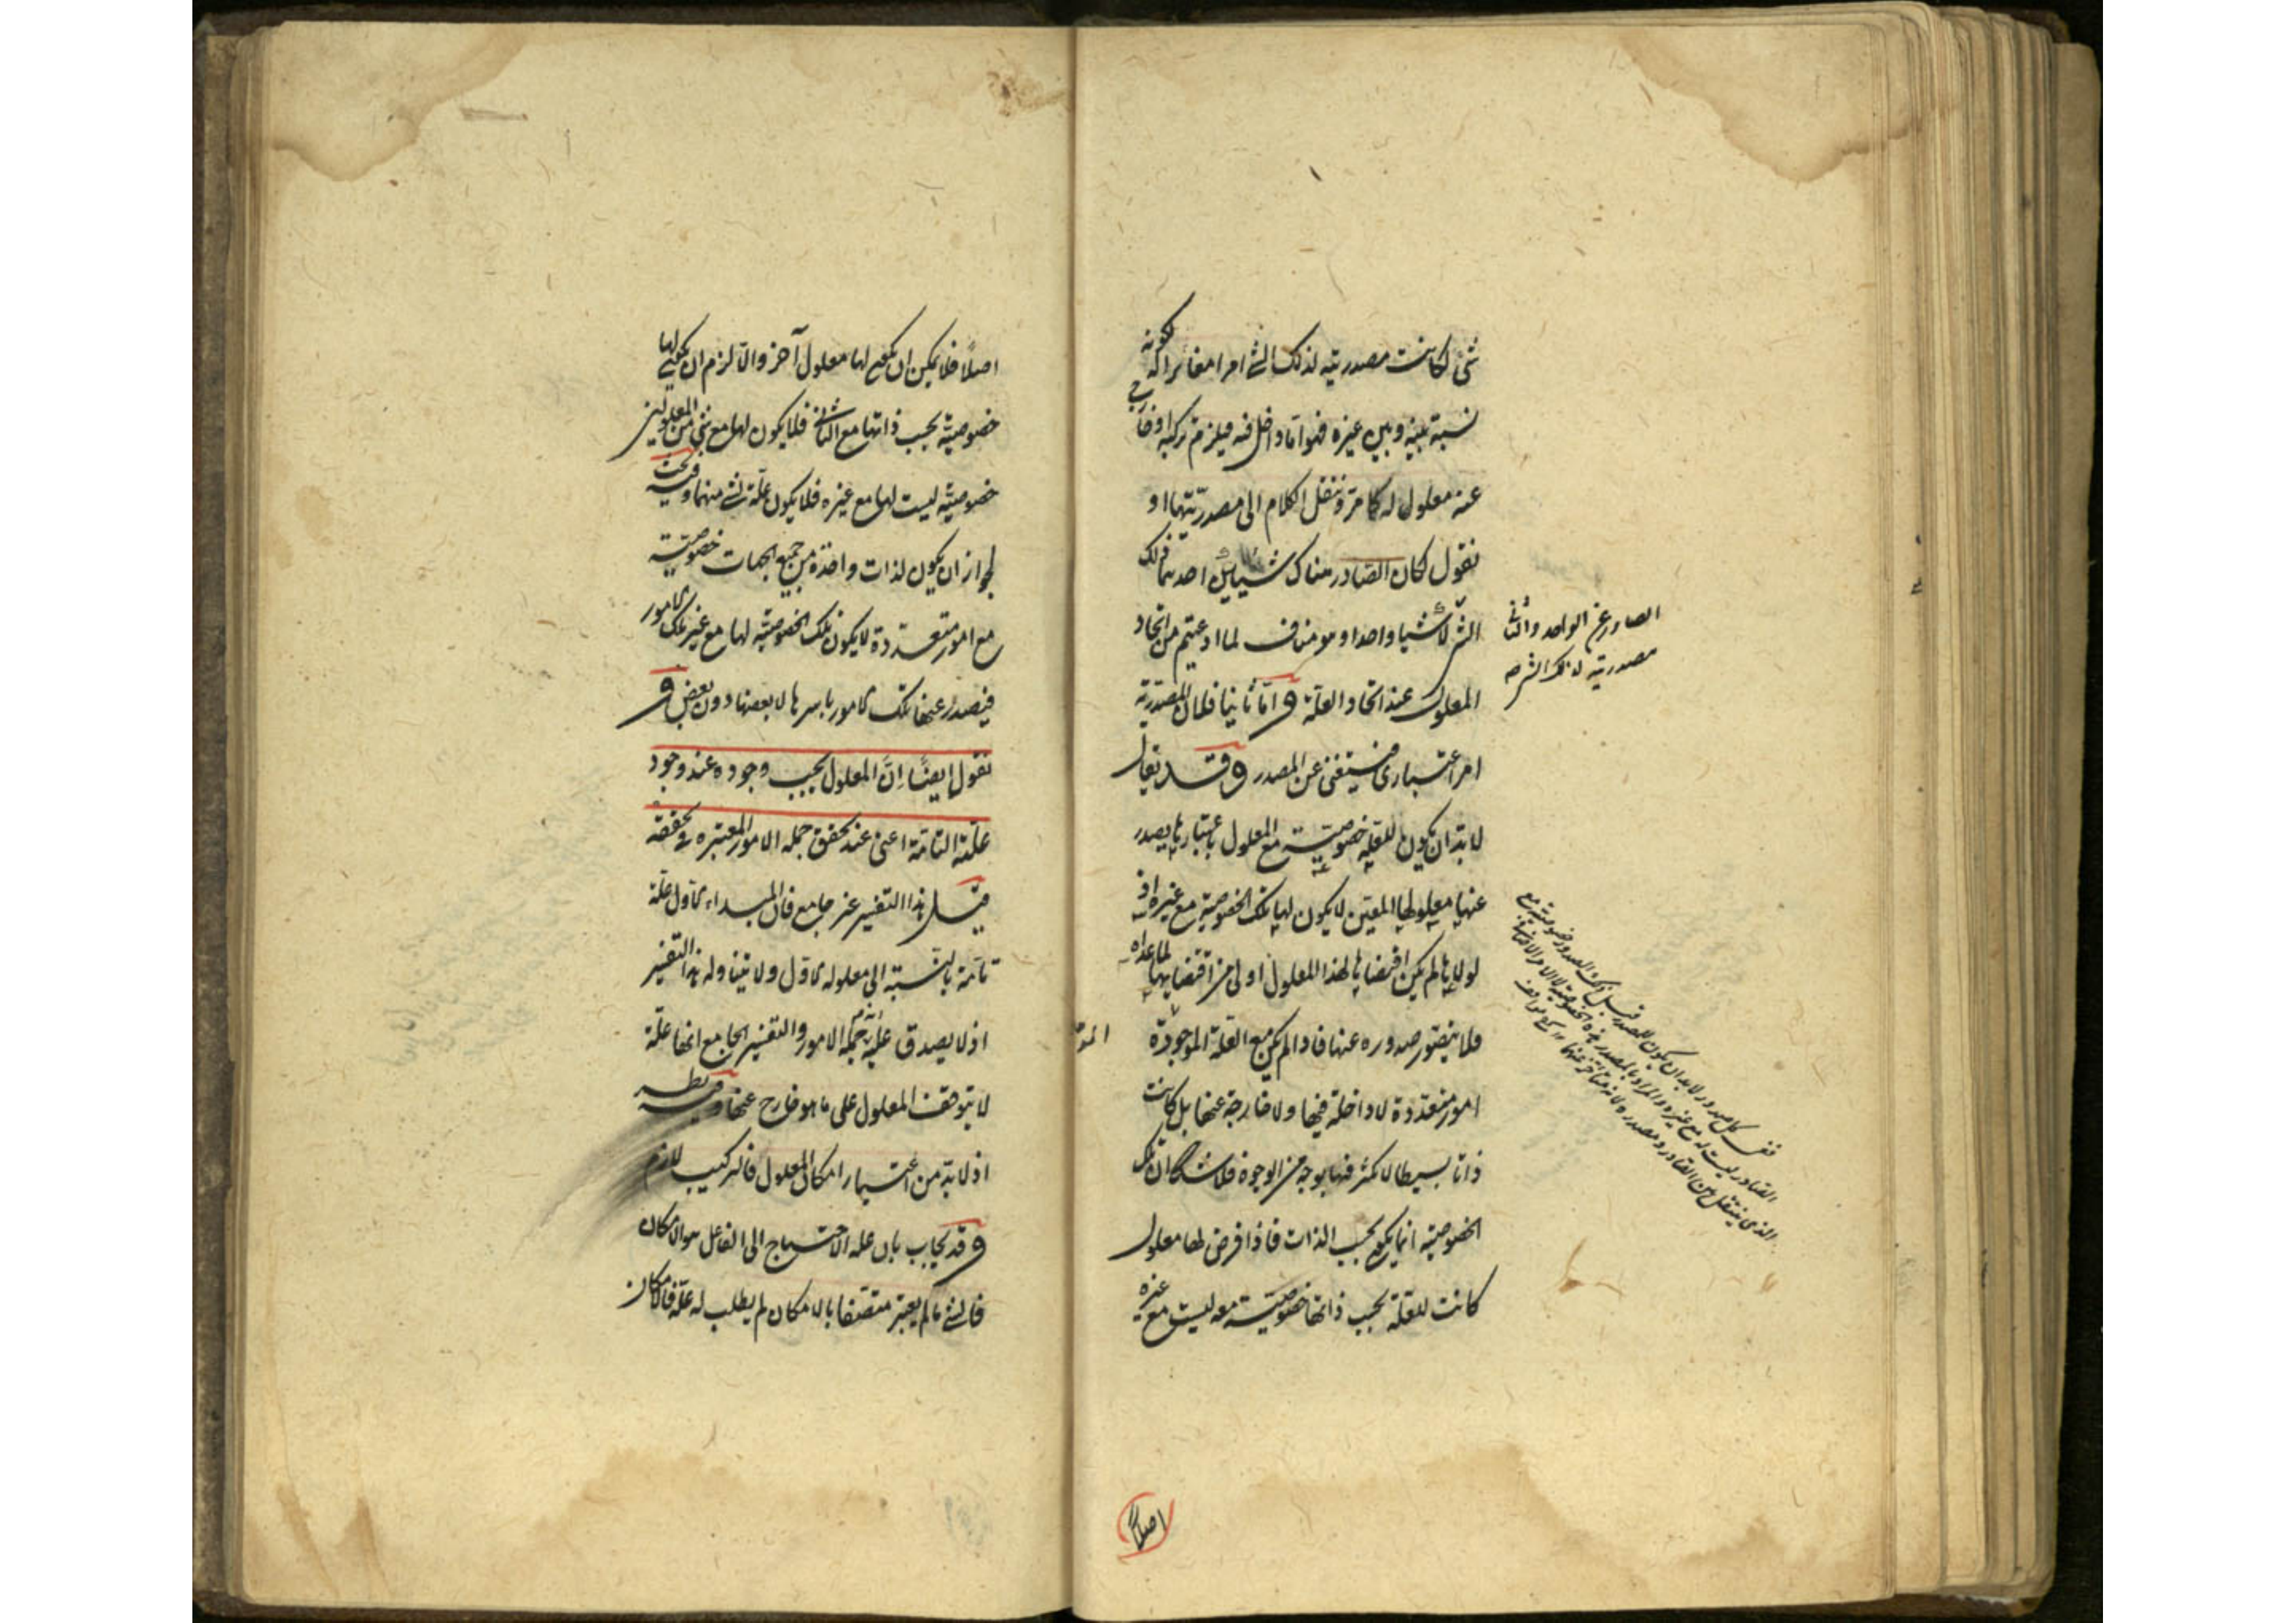 شئ لكانت مصدريته لذلك الشئ امرا مغائرا له لكونه
نسبة بينه وبين غيره فهو اما داخل فيه فيلزم تركبه او خارج
عنه معلول له كما مر وننقل الكلام الى مصدريتها او
نقول لكان الصادر هناك شيأين احدهما ذلك
الشئ لا شيأ واحدا وهو مناف لما ادعيتم من اتحاد
المعلول عند اتحاد العلة واما ثانيا فلان المصدرية
امر اعتباري فيستغنى عن المصدر وقد يقال
لا بد ان يكون للعلة خصوصية مع المعلول باعتبارها يصدر
عنها معلولها المعين لا يكون لها تلك الخصوصية مع غيره اذ
لولاها لم يكن اقتضاؤها لهذا المعلول اولى من اقتضائها لما عداه
فلا يتصور صدوره عنها فاذا لم يكن مع العلة الموجودة
امور متعددة لا داخلة فيها ولا خارجة عنها بل كانت
ذاتا بسيطا لا كثرة فيها بوجه من الوجوه فلا شك ان تلك
الخصوصية انما يكون بحسب الذات فاذا فرض لها معلول
كانت للعلة بحسب ذاتها خصوصية معه ليست مع غيره
الصادر عن الواحد والثاني
مصدريته لذلك الشئ
اصلا
اصلا فلا يمكن ان يكون لها معلول آخر والا لزم ان يكون لها
خصوصية بحسب ذاتها مع الثاني فلا يكون لها مع شئ من المعلولين
خصوصية ليست لها مع غيره فلا يكون علة لشئ منهما وفيه بحث
لجواز ان يكون لذات واحدة من جميع الجهات خصوصية
مع امور متعددة لا يكون تلك الخصوصية لها مع غير تلك الامور
فيصدر عنها تلك الامور باسرها لا بعضها دون بعض و
نقول ايضا ان المعلول يجب وجوده عند وجود
علته التامة اعنى عند تحقق جملة الامور المعتبرة في تحققه
قيل هذا التفسير غير جامع فان المبداء الاول علة
تامة بالنسبة الى معلوله الاول ولا يتناوله هذا التفسير
اذ لا يصدق عليه انه جملة الامور والتفسير الجامع انها علة
لا يتوقف المعلول على ما هو خارج عنها وفيه نظر
اذ لا بد من اعتبار امكان المعلول فالتركيب لازم
وقد يجاب بان علة الاحتياج الى الفاعل هو الامكان
فالشئ ما لم يعتبر متصفا بالامكان لم يطلب له علة فالامكان